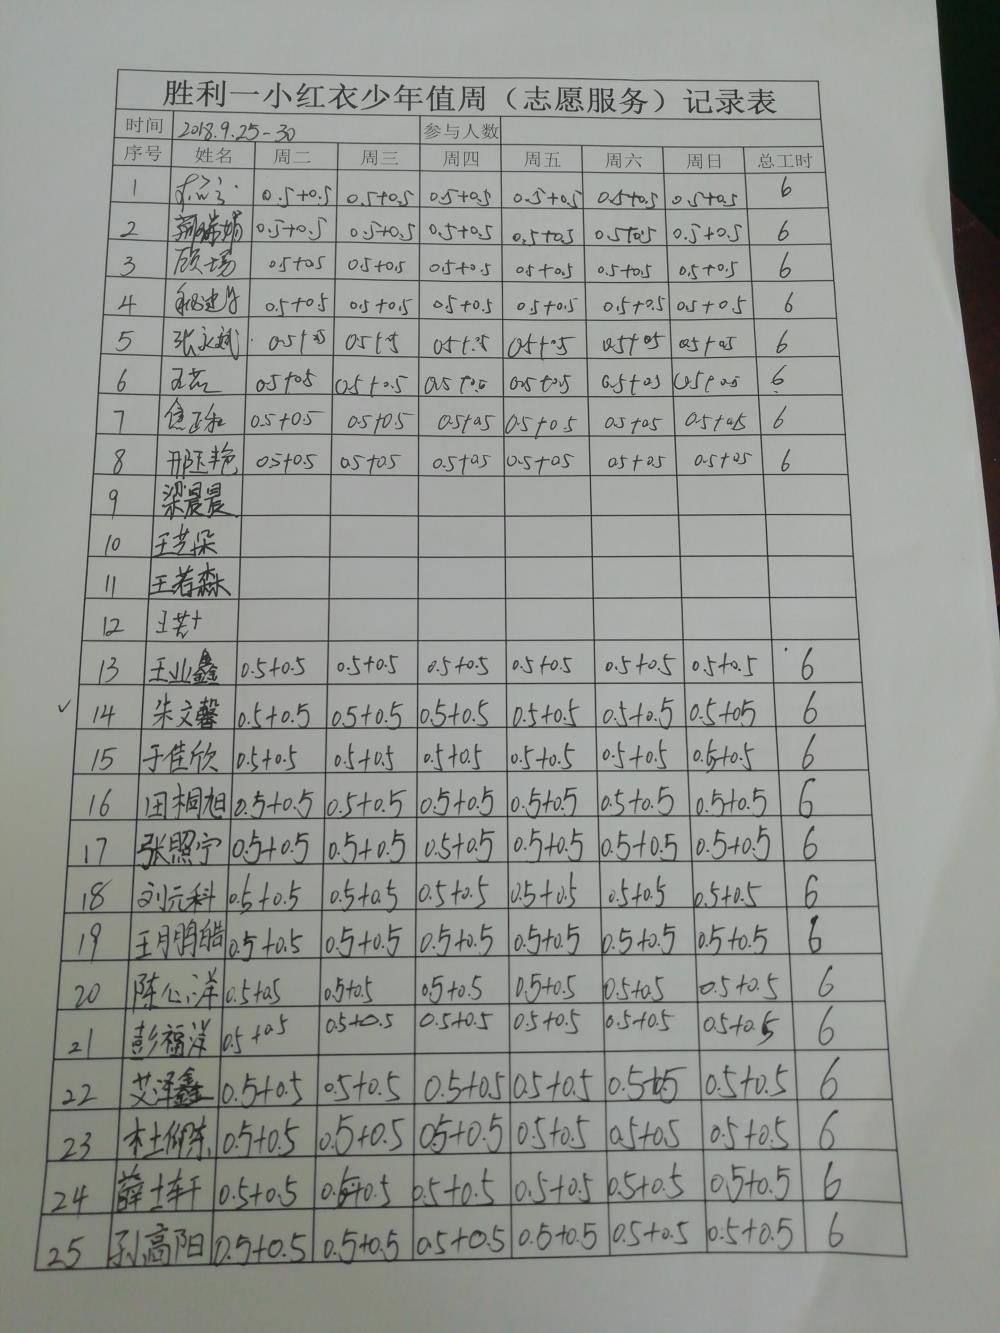 胜利一小红衣少年值周（志愿服务）记录表
时间 2018.9.25-30 参与人数
序号 姓名 周二 周三 周四 周五 周六 周日 总工时
1 0.5+0.5 0.5+0.5 0.5+0.5 0.5+0.5 0.5+0.5 0.5+0.5 6
2 0.5+0.5 0.5+0.5 0.5+0.5 0.5+0.5 0.5+0.5 0.5+0.5 6
3 0.5+0.5 0.5+0.5 0.5+0.5 0.5+0.5 0.5+0.5 0.5+0.5 6
4 0.5+0.5 0.5+0.5 0.5+0.5 0.5+0.5 0.5+0.5 0.5+0.5 6
5 张永斌 0.5+0.5 0.5+.5 0.5+.5 0.5+0.5 0.5+0.5 0.5+0.5 6
6 0.5+0.5 0.5+0.5 0.5+0.5 0.5+0.5 0.5+0.5 0.5+0.5 6
7 焦正和 0.5+0.5 0.5+0.5 0.5+0.5 0.5+0.5 0.5+0.5 0.5+0.5 6
8 邢玉艳 0.5+0.5 0.5+0.5 0.5+0.5 0.5+0.5 0.5+0.5 0.5+0.5 6
9 梁晨晨
10 王艺朵
11 王若森
12
13 王业鑫 0.5+0.5 0.5+0.5 0.5+0.5 0.5+0.5 0.5+0.5 0.5+0.5 6
14 朱文馨 0.5+0.5 0.5+0.5 0.5+0.5 0.5+0.5 0.5+0.5 0.5+0.5 6
15 于佳欣 0.5+0.5 0.5+0.5 0.5+0.5 0.5+0.5 0.5+0.5 0.5+0.5 6
16 田桐旭 0.5+0.5 0.5+0.5 0.5+0.5 0.5+0.5 0.5+0.5 0.5+0.5 6
17 张照宁 0.5+0.5 0.5+0.5 0.5+0.5 0.5+0.5 0.5+0.5 0.5+0.5 6
18 刘元科 0.5+0.5 0.5+0.5 0.5+0.5 0.5+0.5 0.5+0.5 0.5+0.5 6
19 王鹏皓 0.5+0.5 0.5+0.5 0.5+0.5 0.5+0.5 0.5+0.5 0.5+0.5 6
20 陈心洋 0.5+0.5 0.5+0.5 0.5+0.5 0.5+0.5 0.5+0.5 0.5+0.5 6
21 彭福洋 0.5+0.5 0.5+0.5 0.5+0.5 0.5+0.5 0.5+0.5 0.5+0.5 6
22 艾泽鑫 0.5+0.5 0.5+0.5 0.5+0.5 0.5+0.5 0.5+0.5 0.5+0.5 6
23 杜仰东 0.5+0.5 0.5+0.5 0.5+0.5 0.5+0.5 0.5+0.5 0.5+0.5 6
24 薛士轩 0.5+0.5 0.5+0.5 0.5+0.5 0.5+0.5 0.5+0.5 0.5+0.5 6
25 孙高阳 0.5+0.5 0.5+0.5 0.5+0.5 0.5+0.5 0.5+0.5 0.5+0.5 6